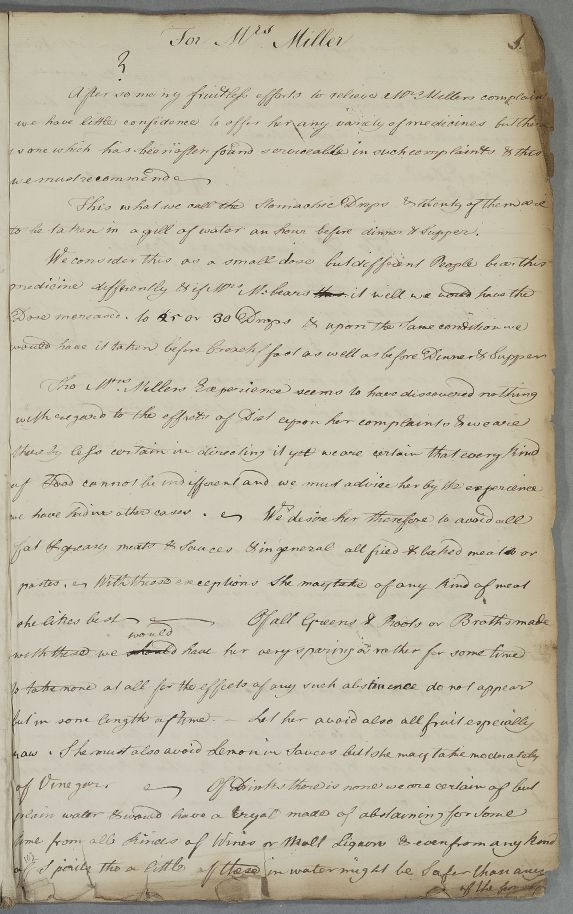 For Mrs Miller
1.
?
After so many fruitless efforts to relieve Mrs Millers complain
we have little confidence to offer her any variety of medicines but ther
is one which has been often found serviceable in such complaints & this
we must recommend
This what we call the Stomachic Drops & twenty of them are
to be taken in a gill of water an hour before dinner & Supper.
We consider this as a small dose but different People bear this
medicine differently & if Mrs M. bears it well we would have the
Dose increased to 25 or 30 Drops & upon the same condition we
would have it taken before breakfast as well as before Dinner & Supper
Tho Mrs Millers Experience seems to have discovered nothing
with regard to the effects of Diet upon her complaints & we are
thereby less certain in directing it yet we are certain that every kind
of Food cannot be indifferent and we must advise her by the experience
we have had in other cases. We desire her therefore to avoid all
fat & greasy meats & Sauces & in general all fried & baked meats or
pastes. With these exceptions She may take of any kind of meat
she likes best Of all Greens & Roots or Broths made
with these we would have her very sparing or rather for some time
to take none at all for the effects of any such abstinence do not appear
but in some length of time. - Let her avoid also all fruit especially
raw. She must also avoid Lemon in Sauces but she may take moderately
of Vinegar. Of Drinks there is none we are certain of but
plain water & would have a tryal made of abstaining for some
time from all kinds of Wines or Malt Liquors & even from any kind
of Spirits tho a little of these in water might be Safer than any
of the